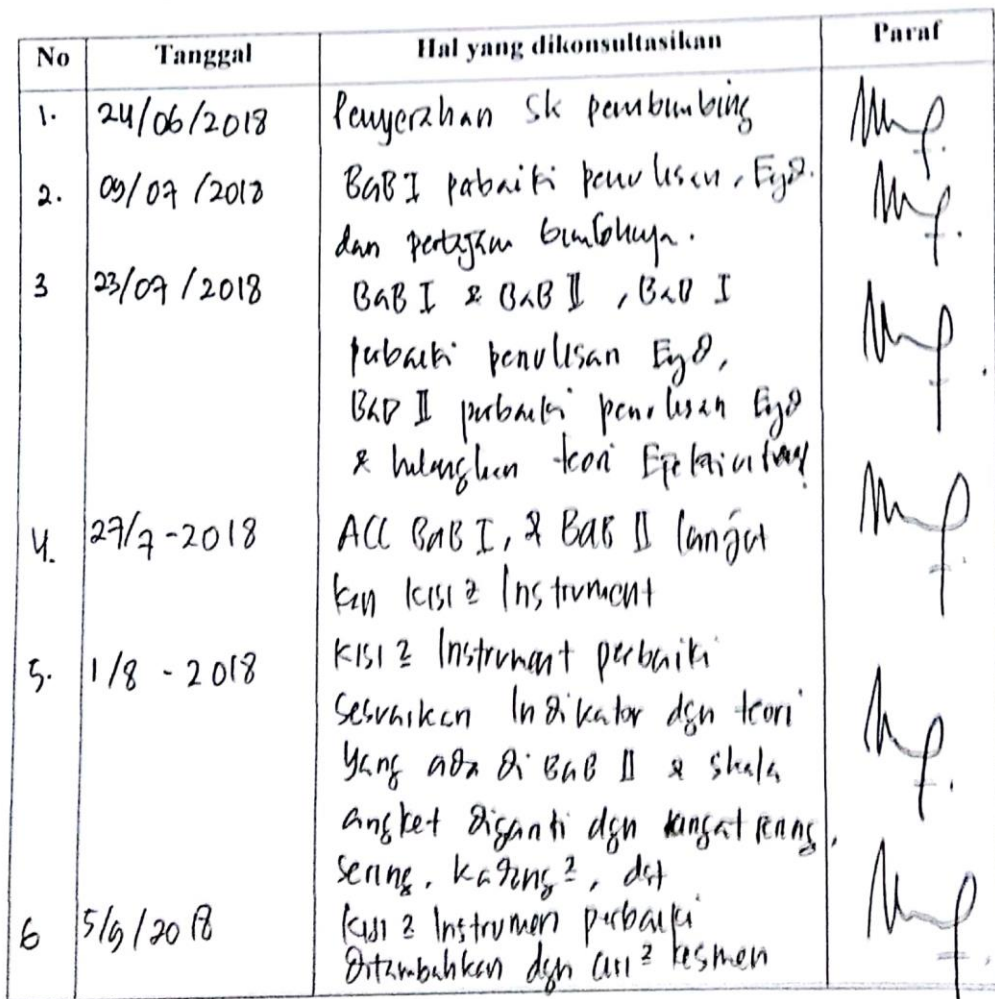 No Tanggal Hal yang dikonsultasikan Paraf
1. 24/06/2018 Penyerahan SK pembimbing
2. 09/07/2018 BAB I perbaiki penulisan, EyD.
dan pertajam
3 23/07/2018 BAB I & BAB II, BAB I
perbaiki penulisan EyD,
BAB II perbaiki penulisan EyD
& hilangkan teori
4. 27/7-2018 ACC BAB I, & BAB II lanjut
kan kisi2 Instrument
5. 1/8-2018 kisi2 Instrument perbaiki
sesuaikan Indikator dgn teori
yang ada di BAB II & skala
angket diganti dgn sangat sering,
sering, kadang2, dst
6 5/9/2018 kisi2 Instrumen perbaiki
ditambahkan dgn